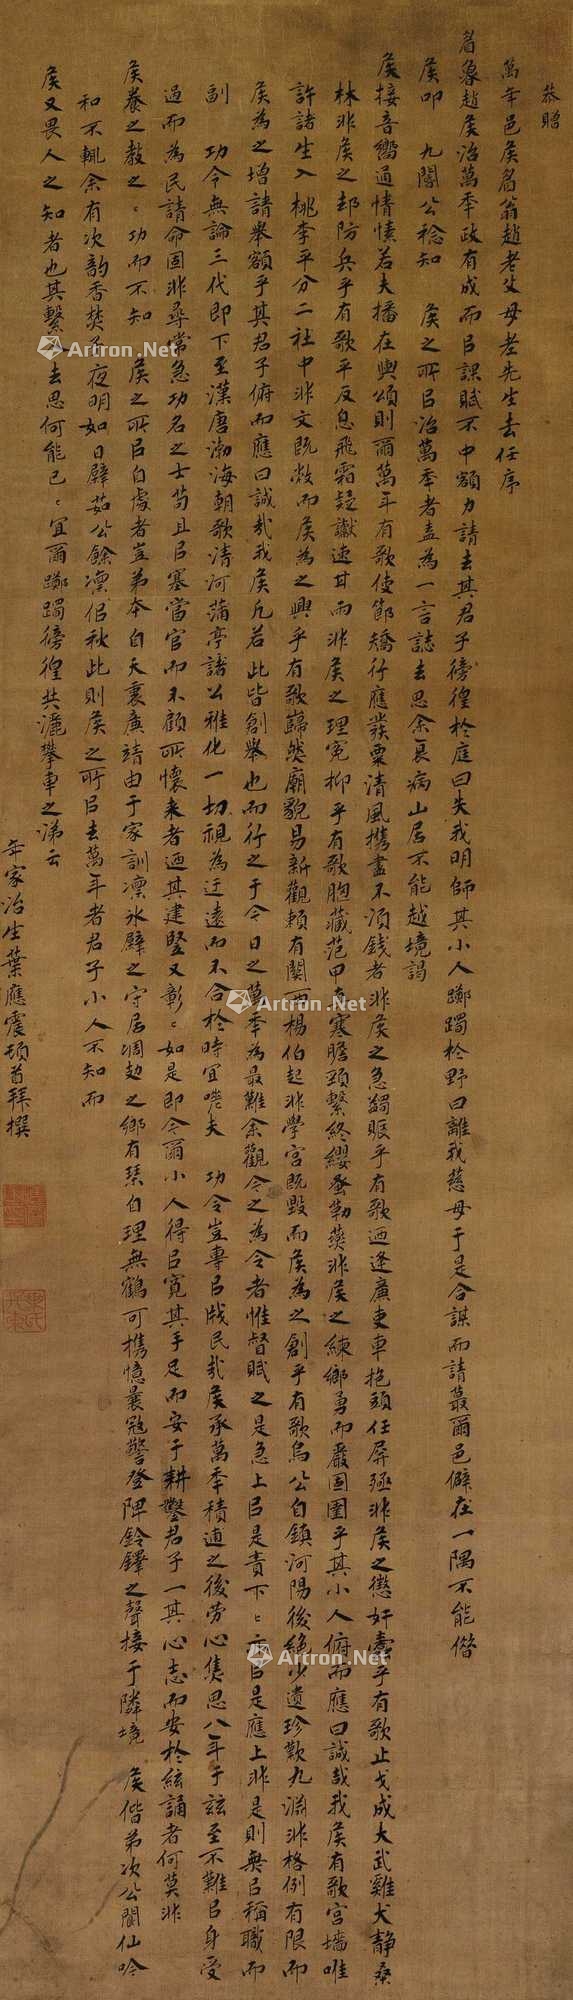 恭贈
萬年邑侯眉翁趙老父母老先生去任序
眉翁趙侯治萬年政有成而㠯課賦不中額力請去其君子徬徨於庭曰失我明師其小人躑躅於野曰離我慈母于是合謀而請蕞爾邑僻在一隅不能偕
侯叩 九閽公稔知 侯之所㠯治萬年者盍為一言誌去思余衰病山居不能越境謁
侯接音嚮通情愫若夫播在輿頌則爾萬年有歌使節矯行應發粟清風攜盡不須錢者非侯之急蠲賑乎有歌西逢廉吏車抱頭任屏殛非侯之懲奸蠹乎有歌止戈成大武雞犬靜桑
林非侯之却防兵乎有歌平反息飛霜疑讞速其而非侯之理冤抑乎有歌胸藏范甲有寒膽頸繫終纓蚤勒 非侯之練鄉勇而嚴固圉乎其小人俯而應曰誠哉我侯有歌宮墻唯
許諸生入桃李平分二社中非文既敝而侯為之興乎有歌巋然廟貌易新觀賴有關西楊伯起非學宮既毀而侯為之創乎有歌烏公自鎮河陽後絕少遺珍歎九淵非格例有限而
侯為之增諸舉額乎其君子俯而應曰誠哉我侯凡若此皆創舉也而行之于今日之萬年為最難余觀今之為令者惟督賦之是急上㠯是責下下亦㠯是應上非是則無㠯稱職而
副 功令無論三代即下至漢唐渤海朝歌清河蒲亭諸公雅化一切視為迂遠而不合於時宜嗟夫 功令豈專㠯戕民哉侯承萬年積逋之後勞心焦思八年于玆至不難㠯身受
過而為民請命固非尋常急功名之士苟且㠯塞當官而不顧所懷來者迺其建豎又彰彰如是即令爾小人得㠯寬其手足而安于耕鑿君子一其心志而安於絃誦者何莫非
侯養之教之之功而不知 侯之所㠯自處者豈弟本自天衷廉靖由于家訓凜冰檗之守居凋劫之鄉有琴自理無鶴可攜憶曩寇警登陴鈴鐸之聲接于隣境 侯偕弟次公閬仙吟
和不輒余有次韵香焚子夜明如日檗茹公餘凛佀秋此則侯之所㠯去萬年者君子小人不知而
侯又畏人之知者也其繫人去思何能已已宜爾躑躅徬徨共灑攀車之涕云
年家治生葉應震頓首拜撰
Artron.Net
Artron.Net
Artron.Net
Artron.Net
Artron.Net
Artron.Net